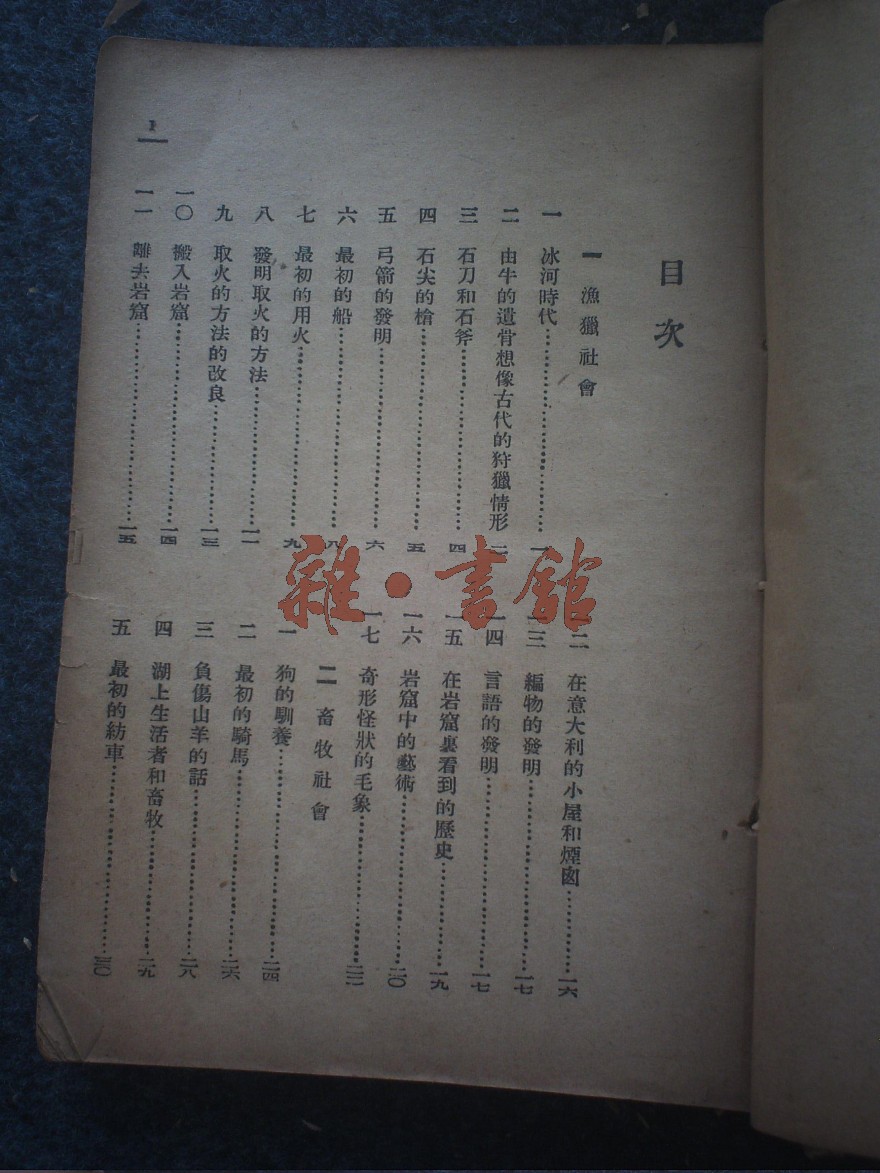 目次
一 漁獵社會
一 冰河時代……一
二 由牛的遺骨想像古代的狩獵情形……二
三 石刀和石斧……四
四 石尖的槍……五
五 弓箭的發明……六
六 最初的船……八
七 最初的用火……九
八 發明取火的方法……一一
九 取火的方法的改良……一三
一〇 搬入岩窟……一四
一一 離去岩窟……一五
一二 在意大利的小屋和煙囪……一六
一三 編物的發明……一七
一四 言語的發明……一七
一五 在岩窟裏看到的歷史……一九
一六 岩窟中的藝術……二〇
一七 奇形怪狀的毛象……二二
二 畜牧社會
一 狗的馴養……二四
二 最初的騎馬……二六
三 負傷山羊的話……二八
四 湖上生活者和畜牧……二九
五 最初的紡車……三〇
1
雜·書館